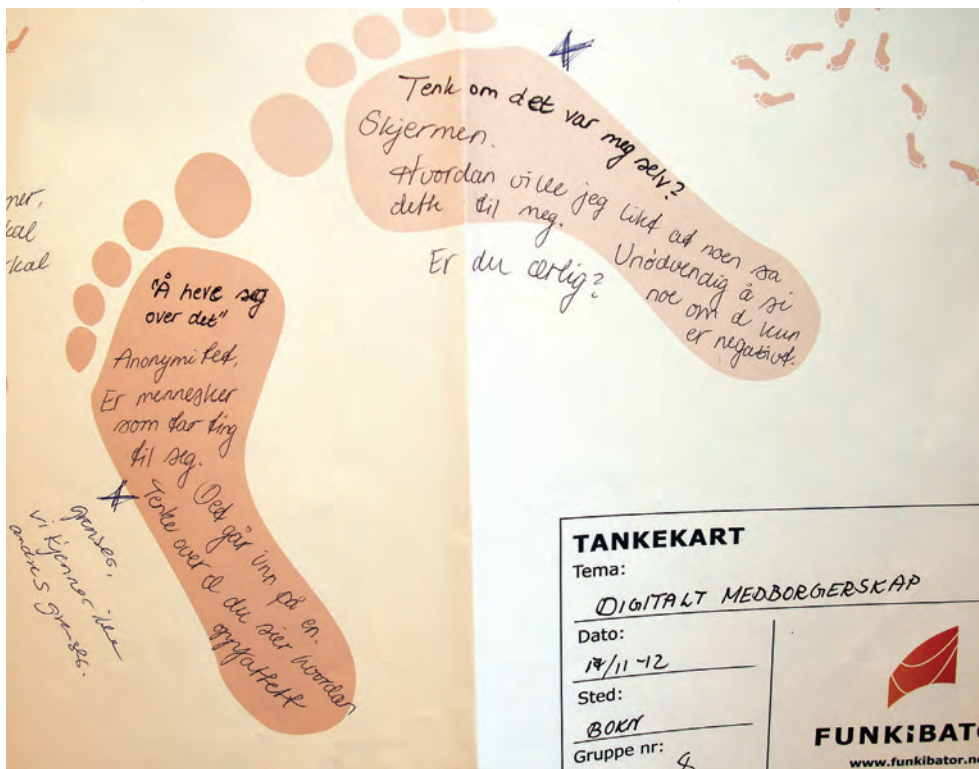 ner,
kal
kal
Tenk om det var meg selv?
Skjermen.
Hvordan ville jeg likt at noen sa
dette til meg.
Unødvendig å si
noe om d kun
er negativt.
Er du ærlig?
"Å heve seg
over det"
Anonymitet.
Er mennesker
som tar ting
til seg.
Det går inn på en.
Tenke over d du sier hvordan
oppfattett
grenser,
vi kjenner ikke
andres grenser.
TANKEKART
Tema:
DIGITALT MEDBORGERSKAP
Dato:
17/11-12
Sted:
BOKN
Gruppe nr:
FUNKiBAT
www.funkibator.n